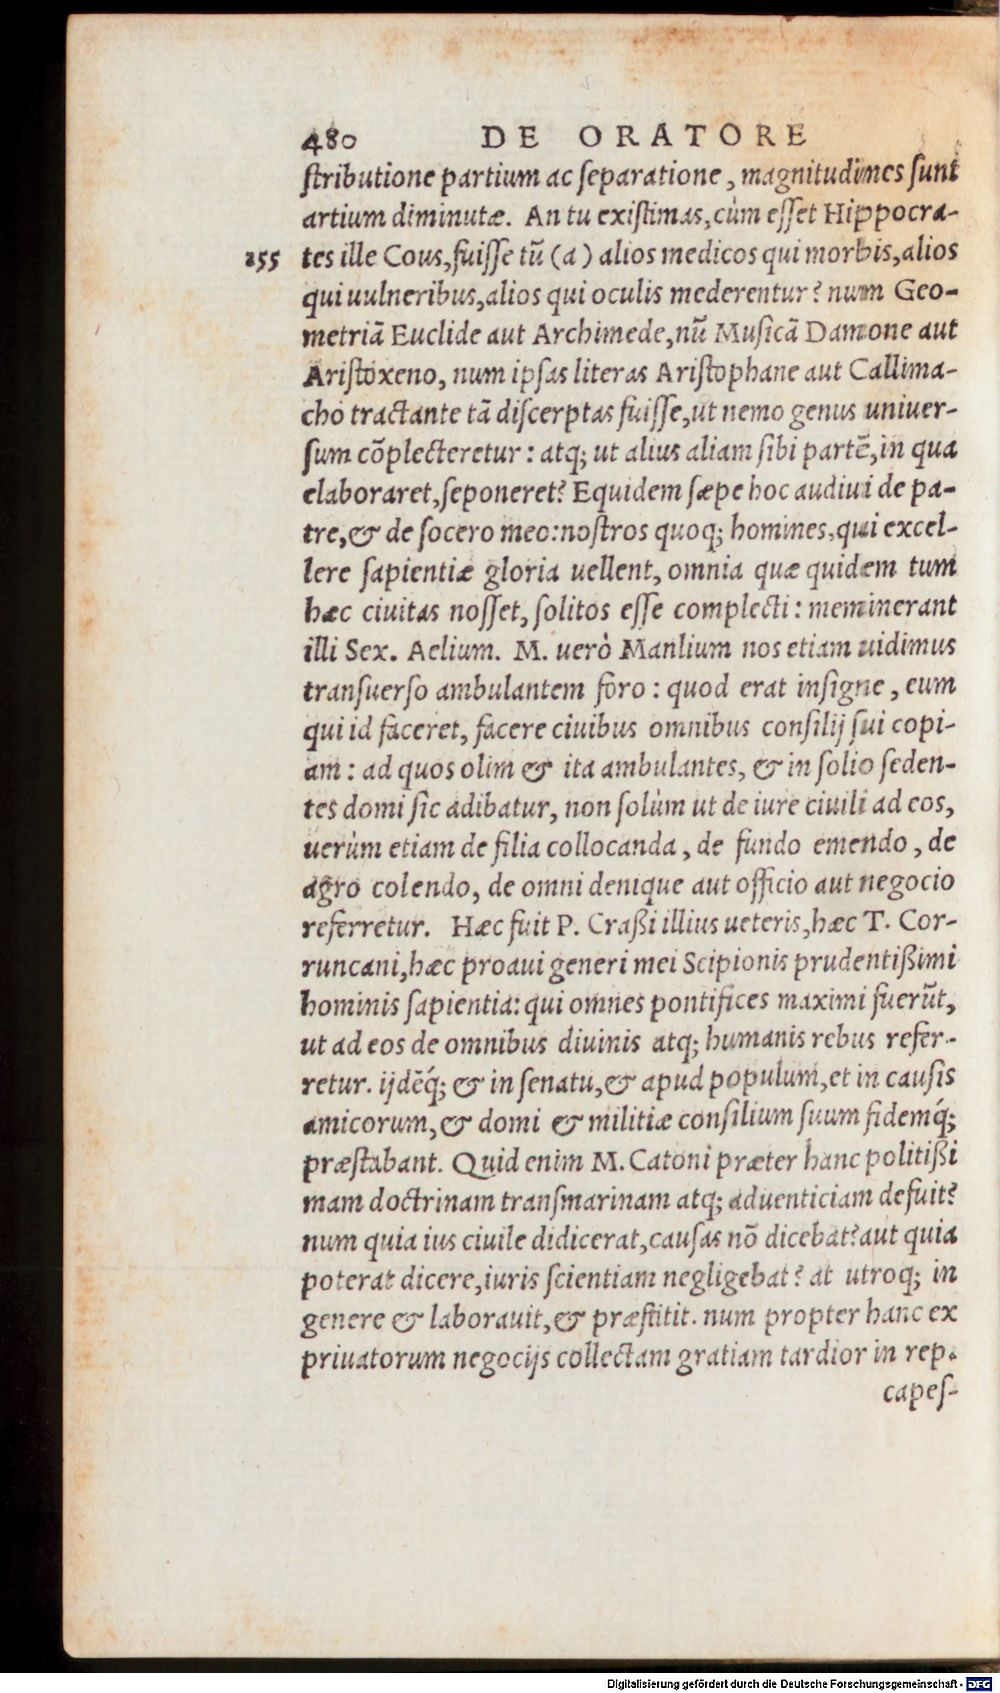 480 DE ORATORE
ſtributione partium ac ſeparatione, magnitudines ſunt
artium diminutæ. An tu exiſtimas, cùm eſſet Hippocra-
255 tes ille Cous, fuiſſe tũ (a) alios medicos qui morbis, alios
qui uulneribus, alios qui oculis mederentur? num Geo-
metriã Euclide aut Archimede, nũ Muſicã Damone aut
Ariſtoxeno, num ipſas literas Ariſtophane aut Callima-
cho tractante tã diſcerptas fuiſſe, ut nemo genus uniuer-
ſum cõplecteretur: atq; ut alius aliam ſibi partẽ, in qua
elaboraret, ſeponeret? Equidem ſæpe hoc audiui de pa-
tre, & de ſocero meo: noſtros quoq; homines, qui excel-
lere ſapientiæ gloria uellent, omnia quæ quidem tum
hæc ciuitas noſſet, ſolitos eſſe complecti: meminerant
illi Sex. Aelium. M. uerò Manlium nos etiam uidimus
tranſuerſo ambulantem foro: quod erat inſigne, eum
qui id faceret, facere ciuibus omnibus conſilij ſui copi-
am: ad quos olim & ita ambulantes, & in ſolio ſeden-
tes domi ſic adibatur, non ſolùm ut de iure ciuili ad eos,
uerùm etiam de filia collocanda, de fundo emendo, de
agro colendo, de omni denique aut officio aut negocio
referretur. Hæc fuit P. Craßi illius ueteris, hæc T. Cor-
runcani, hæc proaui generi mei Scipionis prudentißimi
hominis ſapientia: qui omnes pontifices maximi fuerũt,
ut ad eos de omnibus diuinis atq; humanis rebus refer-
retur. ijdẽq́; & in ſenatu, & apud populum, et in cauſis
amicorum, & domi & militiæ conſilium ſuum fidemq́;
præſtabant. Quid enim M. Catoni præter hanc politißi
mam doctrinam tranſmarinam atq; aduenticiam defuit?
num quia ius ciuile didicerat, cauſas nõ dicebat? aut quia
poterat dicere, iuris ſcientiam negligebat? at utroq; in
genere & laborauit, & præſtitit. num propter hanc ex
priuatorum negocijs collectam gratiam tardior in rep.
capeſ-
Digitalisierung gefördert durch die Deutsche Forschungsgemeinschaft - DFG